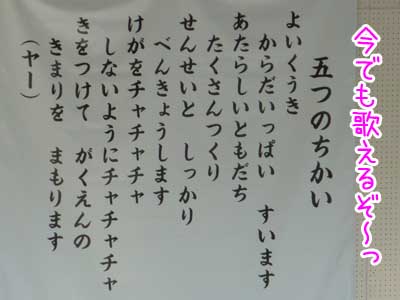 五つのちかい
よいくうき
からだいっぱい　すいます
あたらしいともだち
たくさんつくり
せんせいと　しっかり
べんきょうします
けがをチャチャチャ
しないようにチャチャチャ
きをつけて　がくえんの
きまりを　まもります
（ヤー）
今でも歌えるぞ～っ